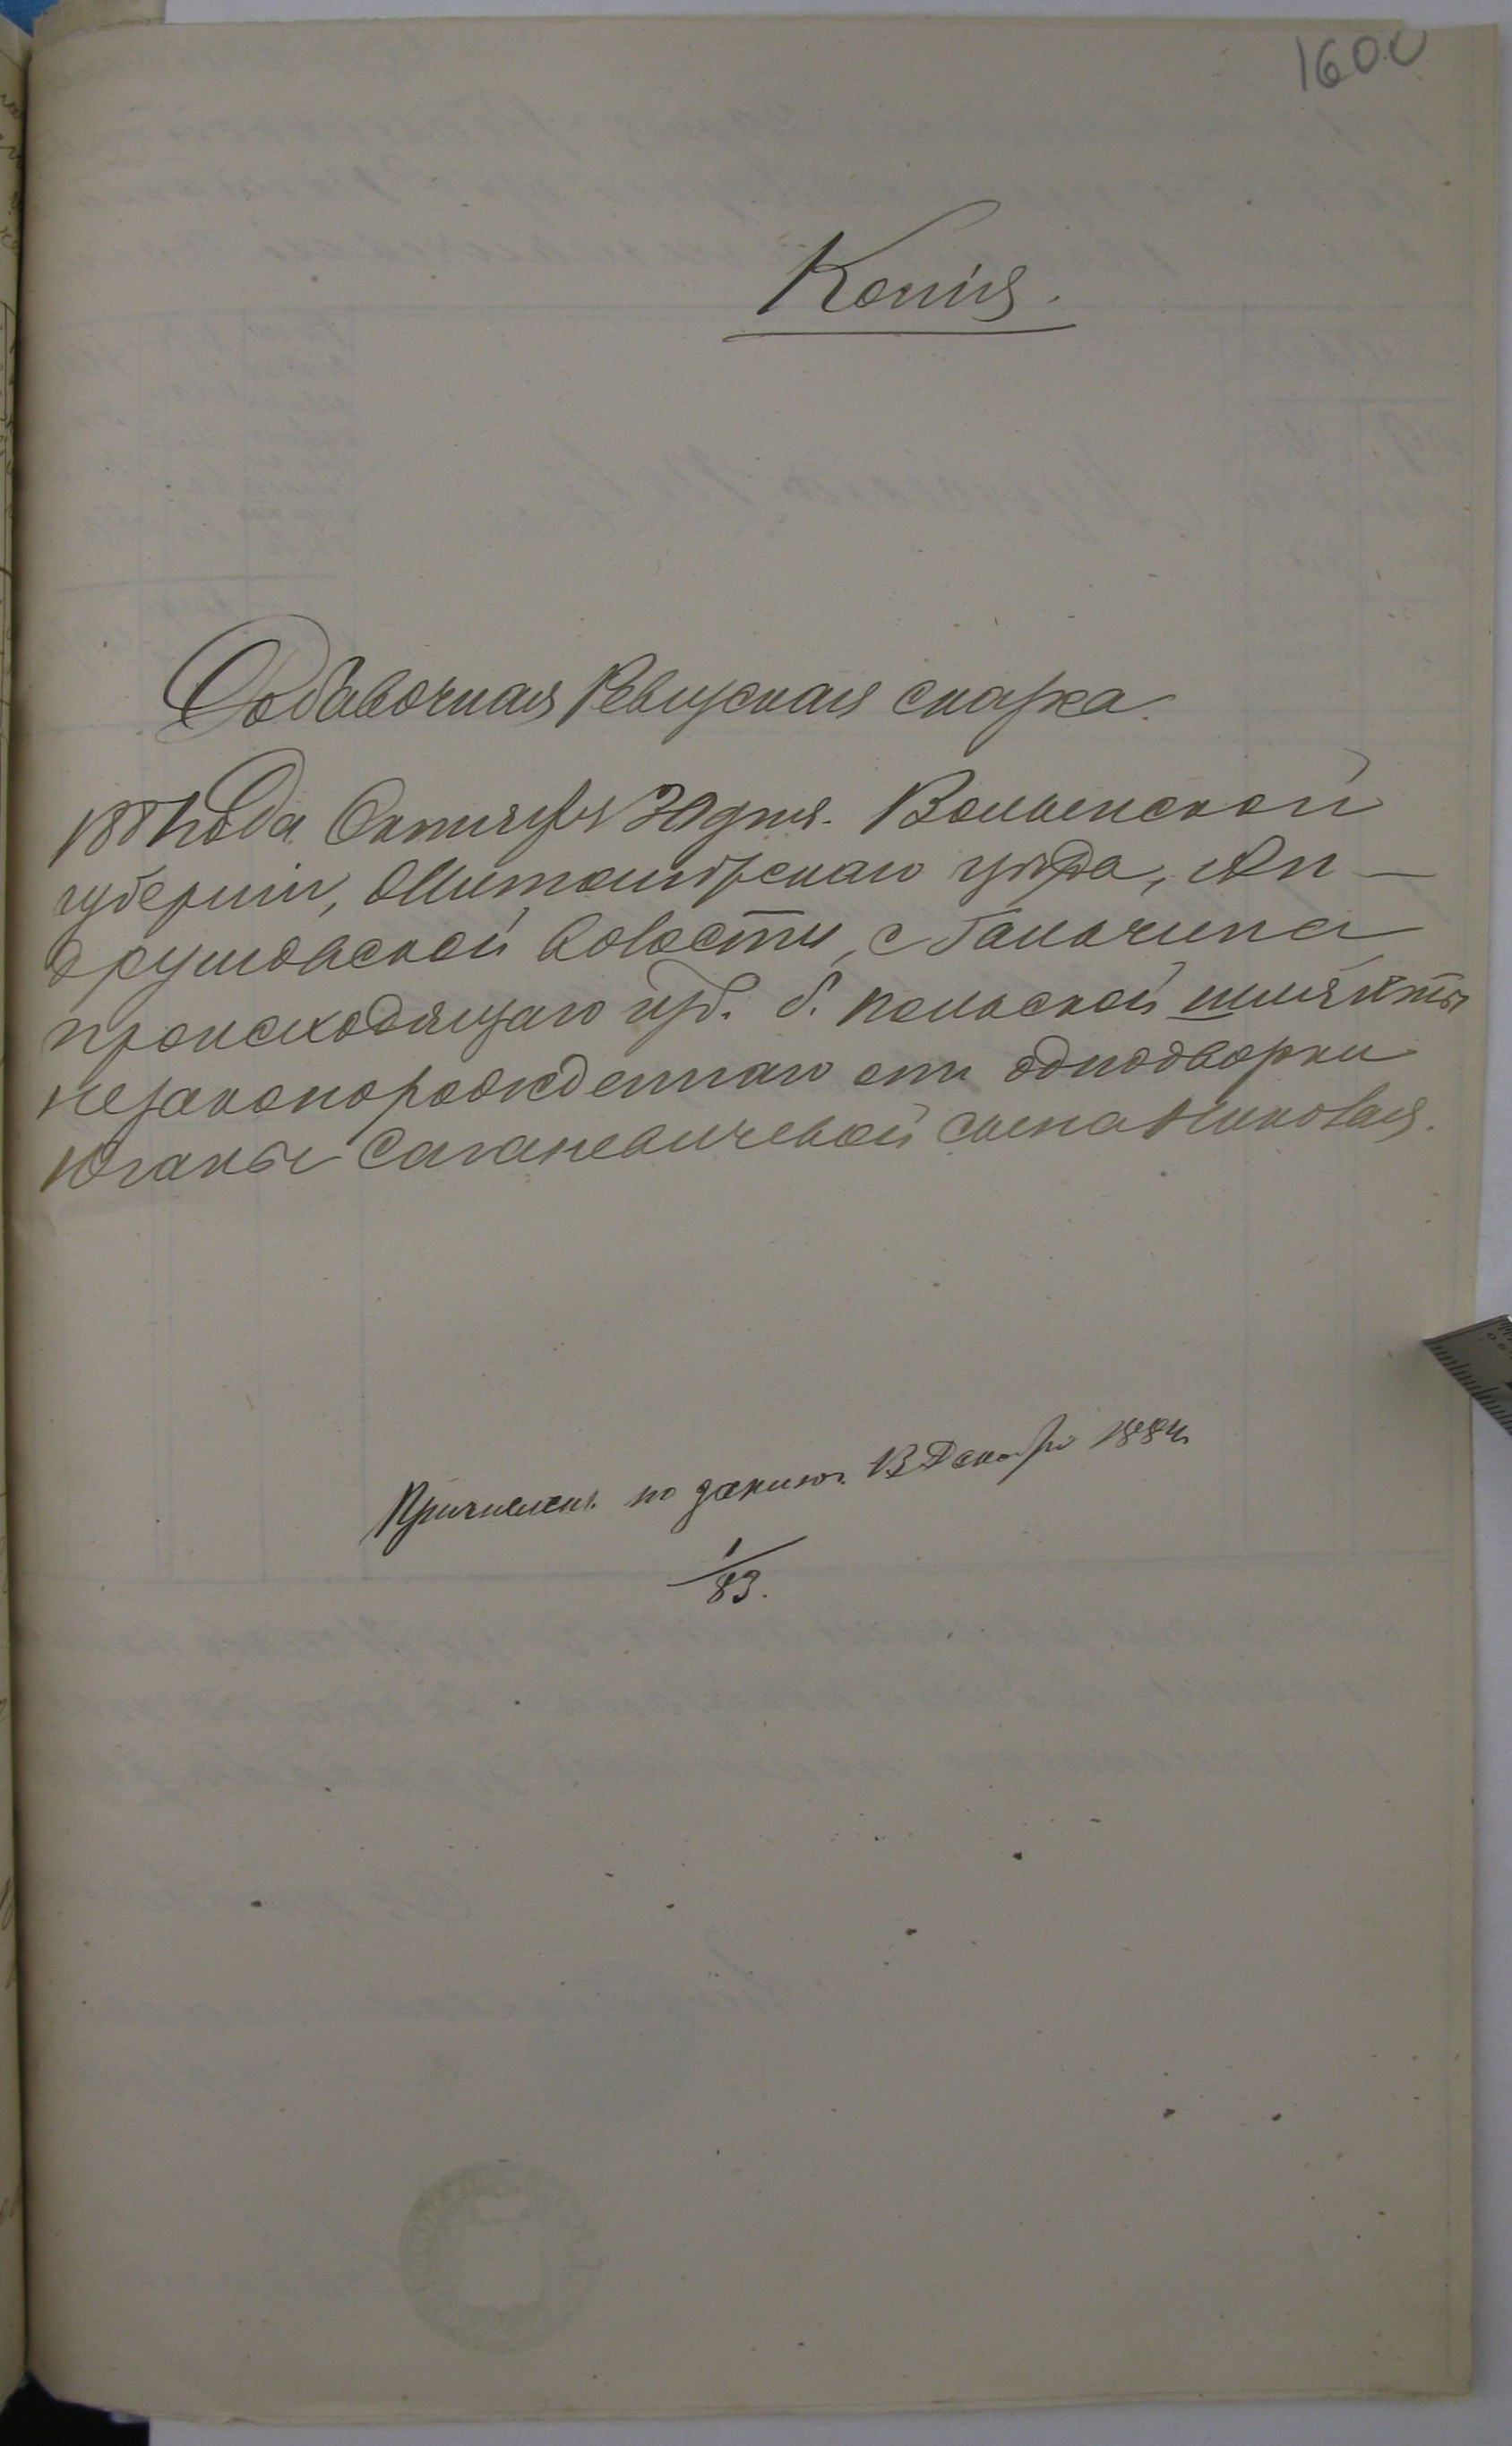 1600
Копія.
Добавочная Ревизская сказка.
188 года Октября 30 дня. Волынской
губерніи, Житомирскаго уѣзда, Ан-
друшовской волости, с Гальчина
происходящаго изъ б. польской шляхты
незаконорожденнаго отъ однодворки
Юганы сына Николая.
Причислен. по 13 Декабря 1884
1/83.